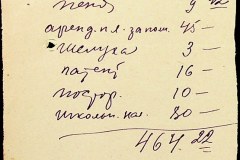 пеня 9 42
аренд. пл. за пом. 45 —
Шелуха 3 —
патент 16 —
постор. 10 —
школьн. нал. 30 —
464 22